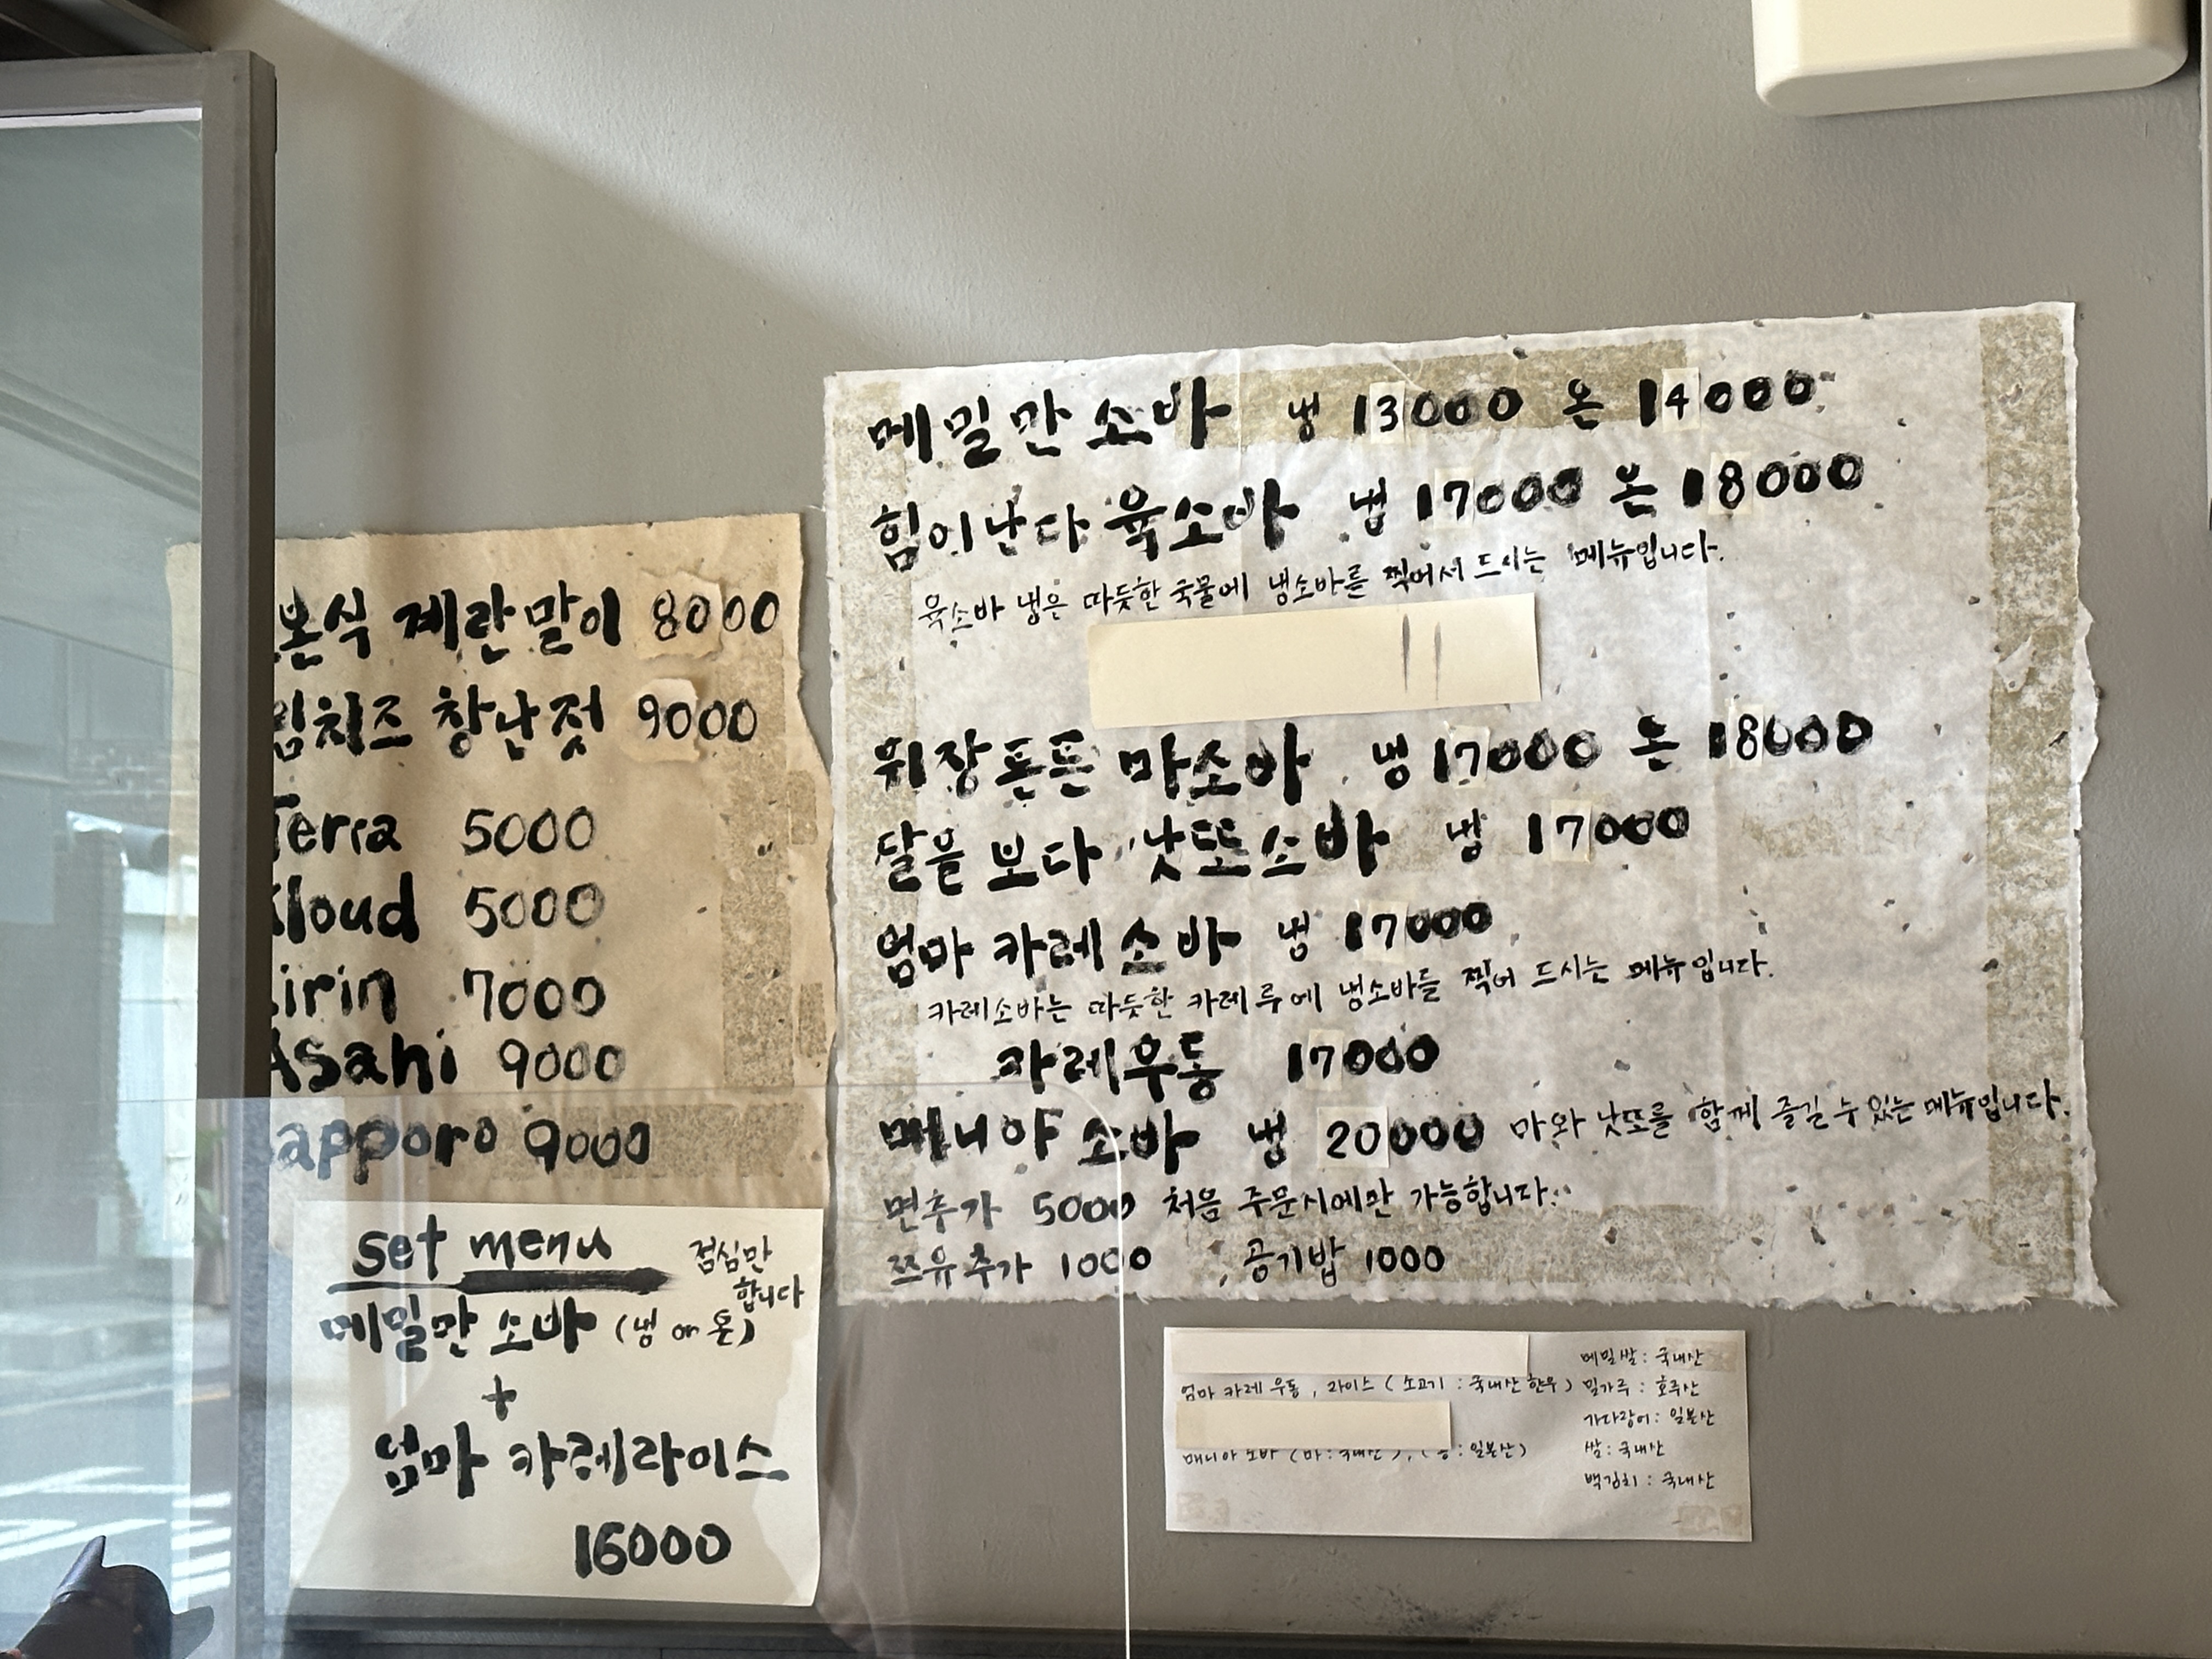 메밀만소바 냉 13000 온 14000
힘이난다 육소바 냉 17000 온 18000
육소바 냉은 따듯한 국물에 냉소바를 찍어서 드시는 메뉴입니다.
위장튼튼 마소바 냉 17000 온 18000
달을 보다 낫또소바 냉 17000
엄마 카레 소바 냉 17000
카레소바는 따듯한 카레루에 냉소바를 찍어 드시는 메뉴입니다.
카레우동 17000
매니아 소바 냉 20000 마와 낫또를 함께 즐길 수 있는 메뉴입니다.
면추가 5000 처음 주문시에만 가능합니다.
쯔유추가 1000 공기밥 1000
본식 계란말이 8000
림치즈 창난젓 9000
Terra 5000
Kloud 5000
Kirin 7000
Asahi 9000
Sapporo 9000
set menu 점심만
합니다
메밀만 소바 (냉 or 온)
+
엄마 카레라이스
16000
메밀쌀 : 국내산
엄마 카레 우동 , 라이스 ( 소고기 : 국내산 한우 ) 밀가루 : 호주산
가다랑어 : 일본산
쌀 : 국내산
매니아 소바 (마 : 국내산 ) , ( 콩 : 일본산 )
백김치 : 국내산